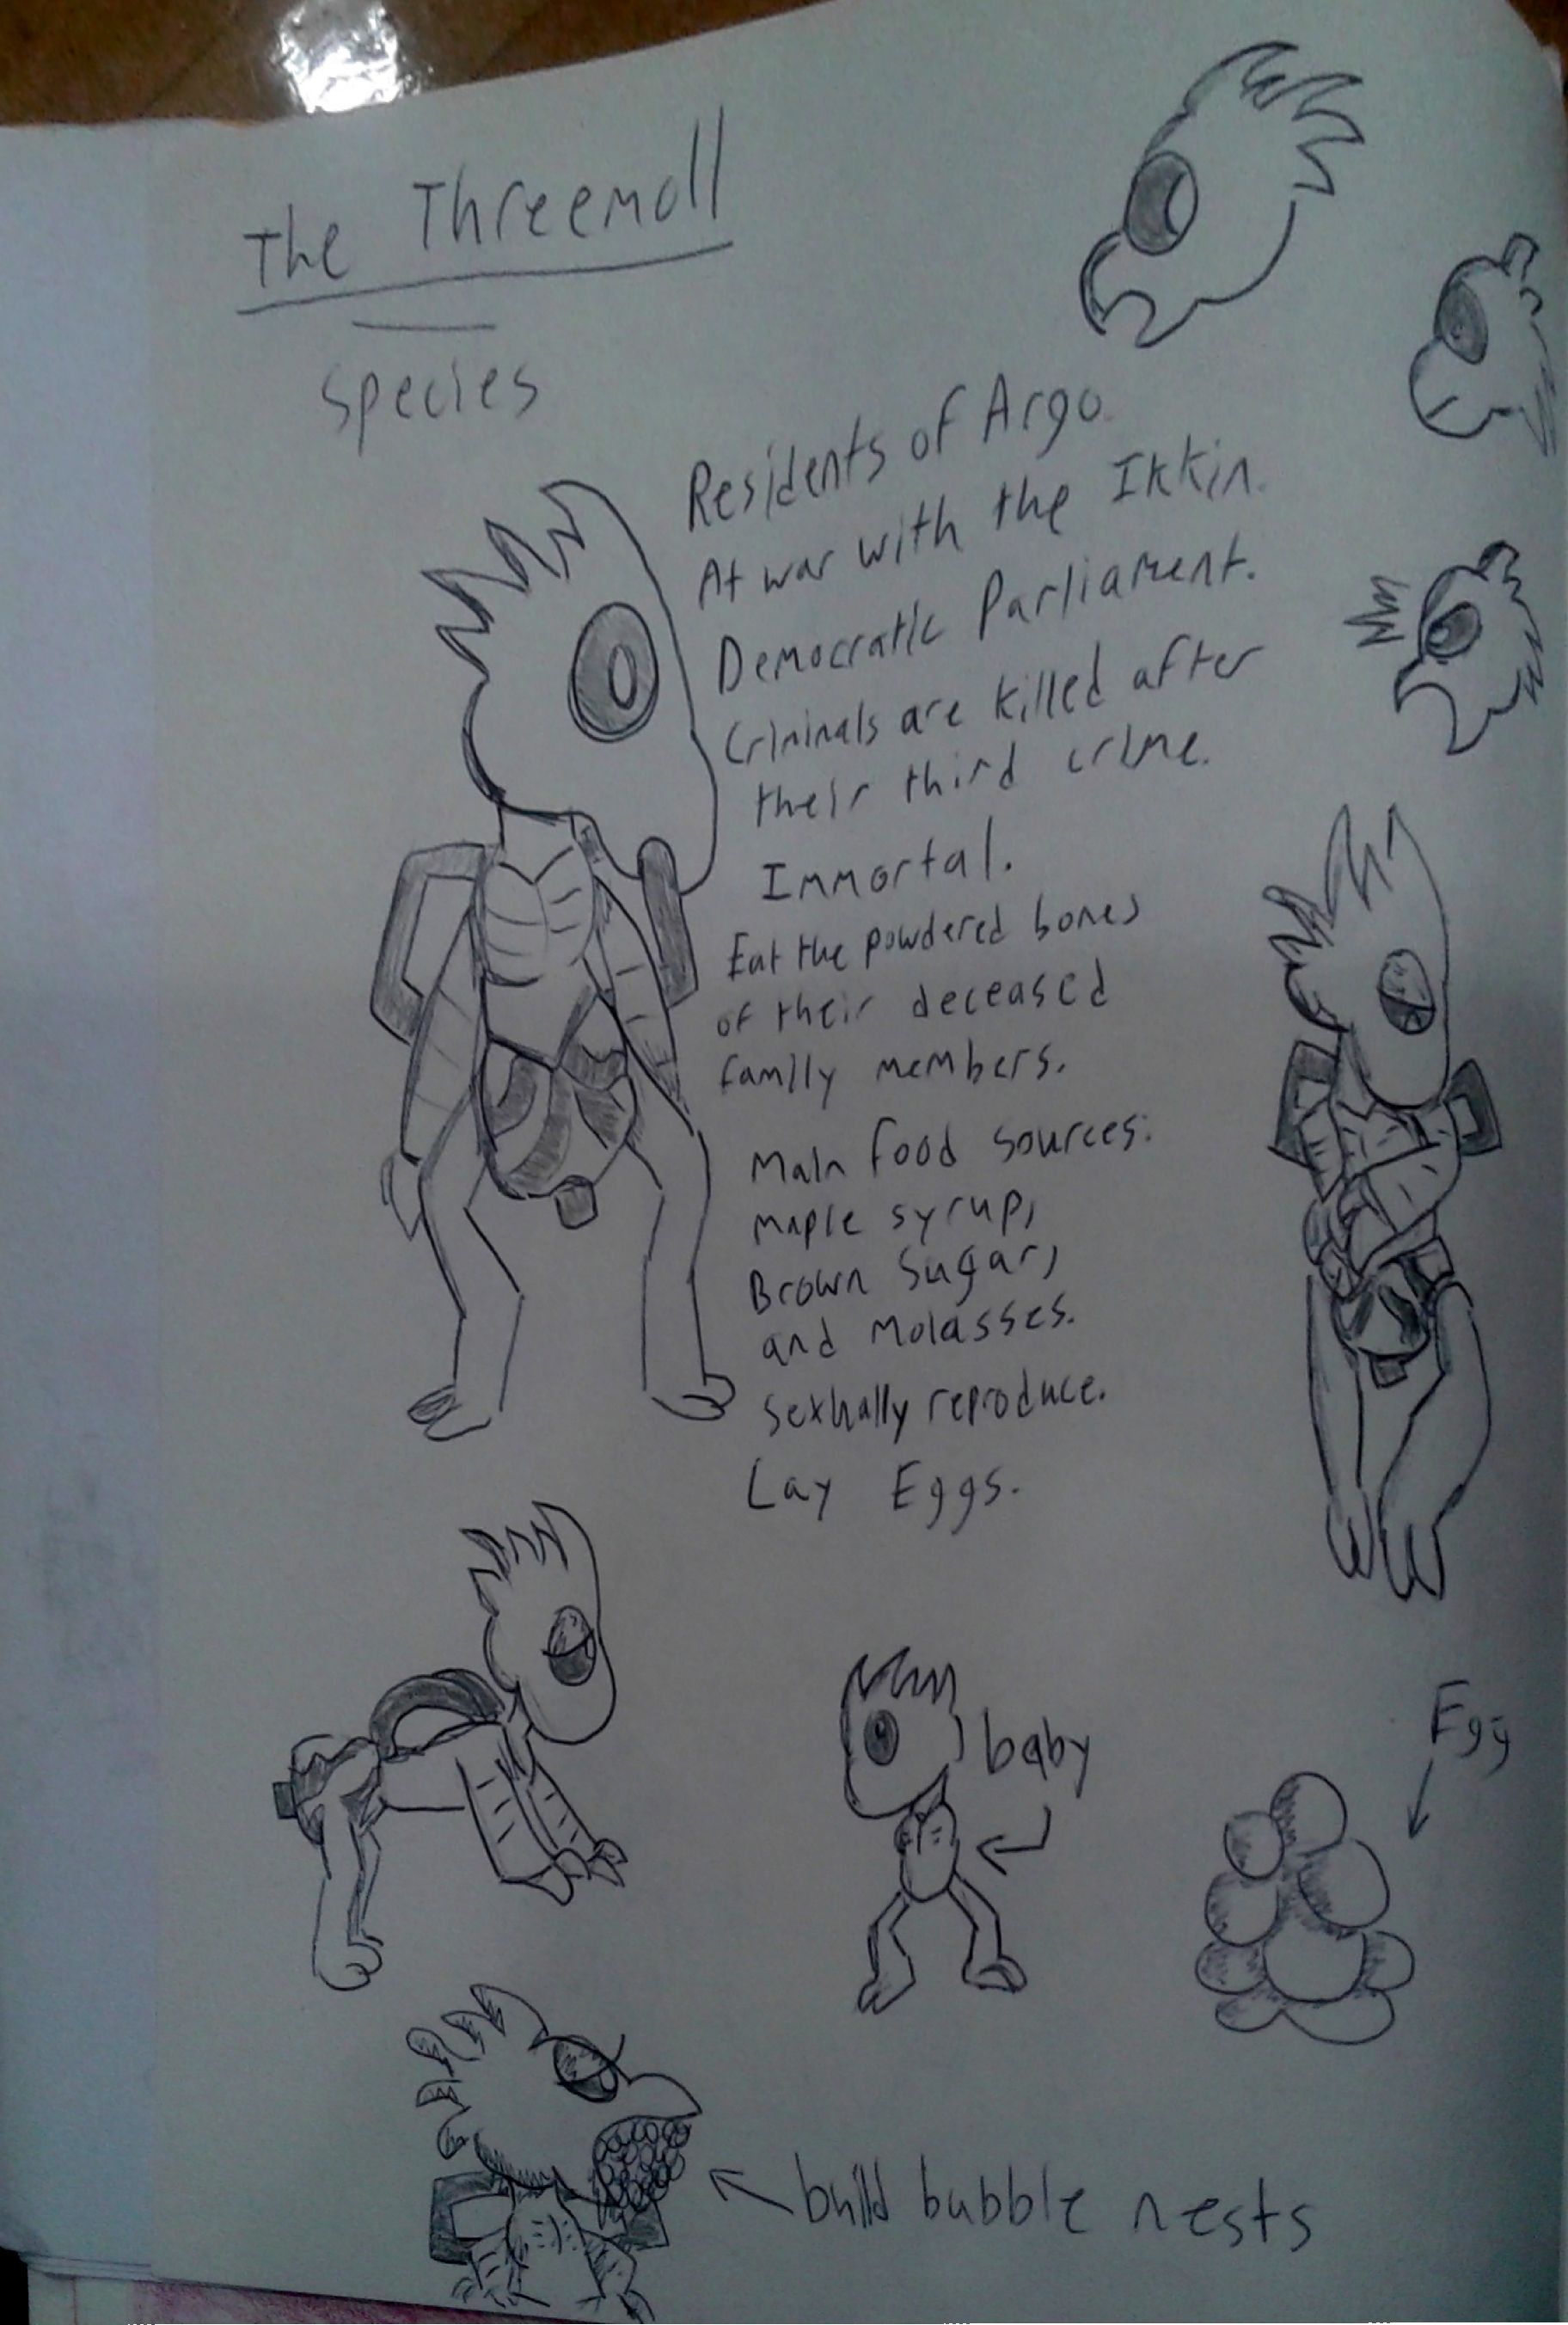 The Threemoll
Species
Residents of Argo.
At war with the Ikkin.
Democratic Parliament.
Criminals are killed after
their third crime.
Immortal.
Eat the powdered bones
of their deceased
family members.
Main food sources:
maple syrup,
Brown Sugar,
and Molasses.
Sexually reproduce.
Lay Eggs.
baby
Egg
build bubble nests